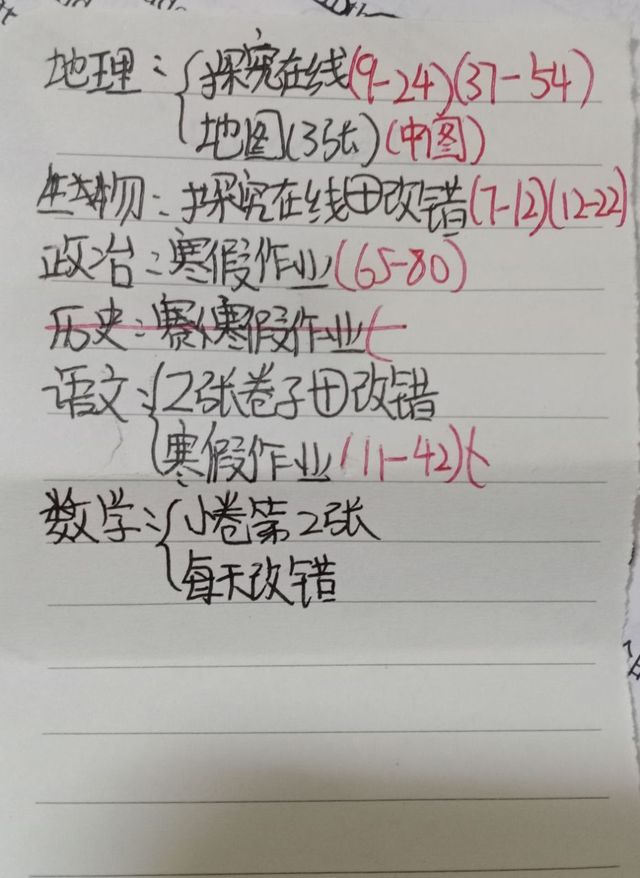 地理：探究在线(9-24)(37-54)
地图(3张)(中图)
生物：探究在线田改错(7-12)(12-22)
政治：寒假作业(65-80)
历史：寒假作业(
语文：2张卷子田改错
寒假作业(11-42)(
数学：小卷第2张
每天改错